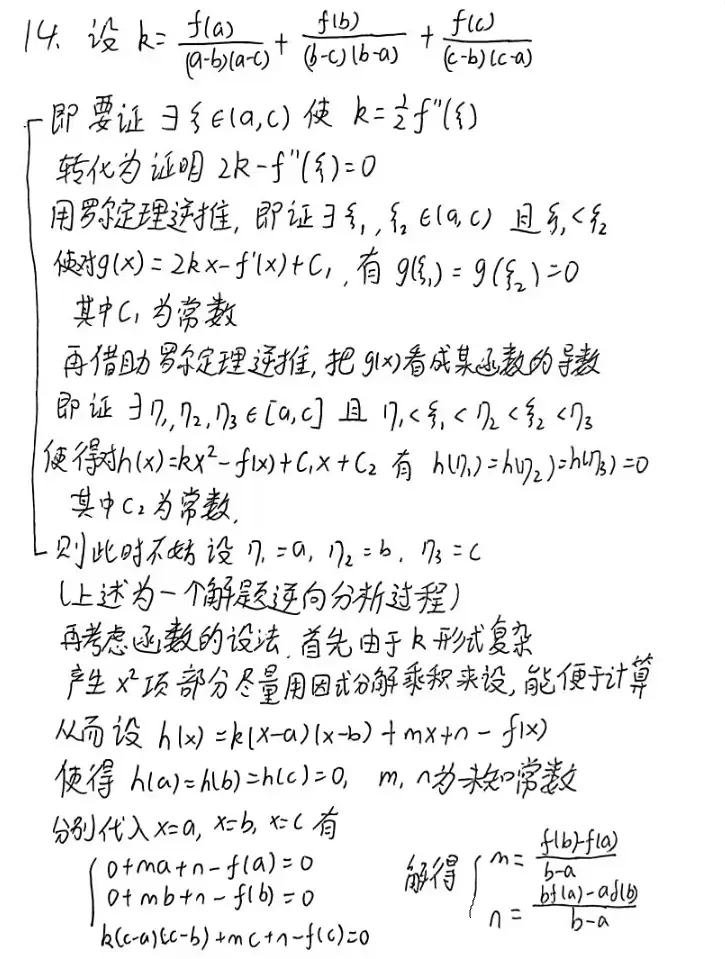 14. 设 k = \frac{f(a)}{(a-b)(a-c)} + \frac{f(b)}{(b-c)(b-a)} + \frac{f(c)}{(c-b)(c-a)}
即要证 ∃ξ∈(a,c) 使 k=\frac{1}{2}f''(ξ)
转化为证明 2k-f''(ξ)=0
用罗尔定理逆推, 即证∃ξ₁,ξ₂∈(a,c) 且ξ₁<ξ₂
使对g(x)=2kx-f'(x)+C₁, 有 g(ξ₁)=g(ξ₂)=0
其中C₁为常数
再借助罗尔定理逆推, 把g(x)看成某函数的导数
即证∃η₁,η₂,η₃∈[a,c] 且 η₁<ξ₁<η₂<ξ₂<η₃
使得对h(x)=kx²-f(x)+C₁x+C₂ 有 h(η₁)=h(η₂)=h(η₃)=0
其中C₂为常数,
则此时不妨设 η₁=a, η₂=b, η₃=c
(上述为一个解题逆向分析过程)
再考虑函数的设法, 首先由于k形式复杂
产生x²项部分尽量用因式分解乘积来设, 能便于计算
从而设 h(x)=k(x-a)(x-b)+mx+n-f(x)
使得 h(a)=h(b)=h(c)=0, m, n为未知常数
分别代入x=a, x=b, x=c 有
0+ma+n-f(a)=0
0+mb+n-f(b)=0
k(c-a)(c-b)+mc+n-f(c)=0
解得
m=\frac{f(b)-f(a)}{b-a}
n=\frac{bf(a)-af(b)}{b-a}